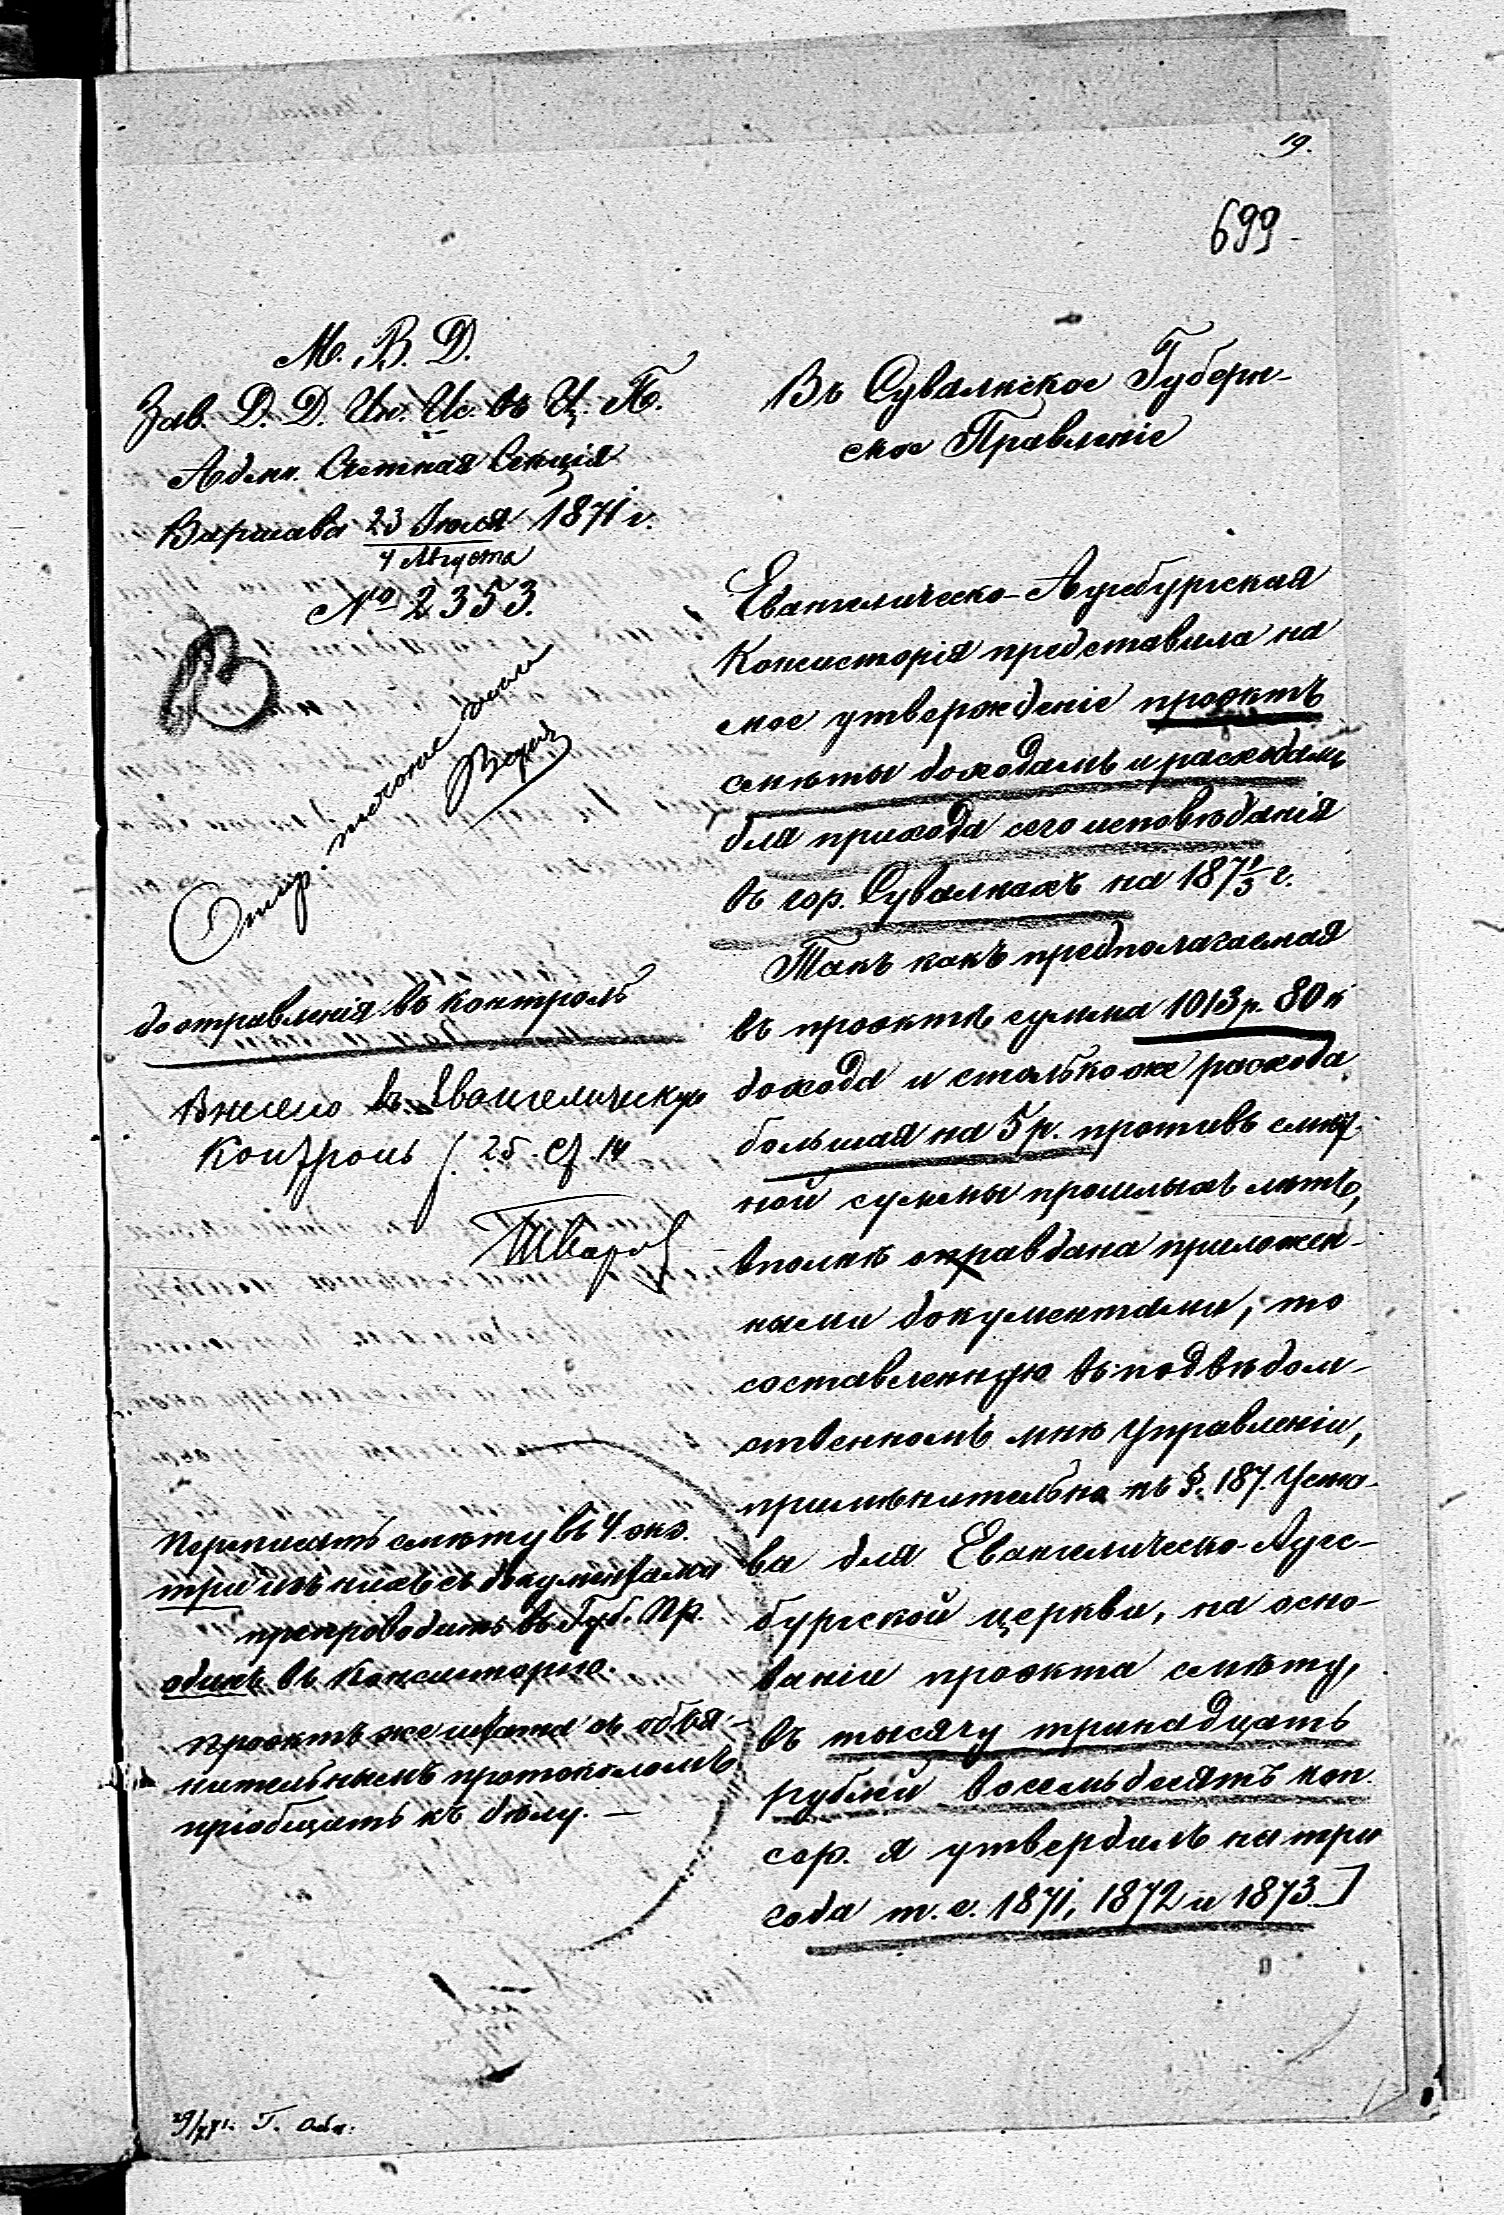 19.
699
М. В. Д.
Зав. Д. Д. Ин. Ис. въ Ц. П.
Адми. Счетная Секція
Варшава 23 Июля 1871 г.
4 Августа
№ 2353.
В
Отпр.
до отправленія въ контроль
Внесено въ Евангелическую
Контроль 25.
Переписать смѣту въ 4 экз.
три изъ нихъ съ документами
препроводить въ Губ. Пр.
одинъ въ Консисторію.
Проэктъ же штата съ объя-
нительнымъ протоколомъ
пріобщать къ дѣлу. —
Въ Сувалкское Губерн-
ское Правленіе
Евангелическо-Аугсбургская
Консисторія представила на
мое утвержденіе проэктъ
смѣты доходамъ и расходамъ
для прихода сего исповѣданія
въ гор. Сувалкахъ на 187 1/3 г.
Такъ какъ предполагаемая
въ проэктѣ сумма 1013 р. 80 к
дохода и столько же расхода
большая на 5 р. противъ смѣт-
ной суммы прошлыхъ лѣтъ,
вполнѣ оправдана приложен-
ными документами, то
составленную въ подвѣдом-
ственномъ мнѣ Управленіи,
примѣнительно къ §. 187. Уста-
ва для Евангелическо-Аугс-
бургской церкви, на осно-
ваніи проэкта смѣту,
въ тысячу тринадцать
рублей восемьдесятъ коп.
сер. я утвердилъ на три
года т. е. 1871, 1872 и 1873.]